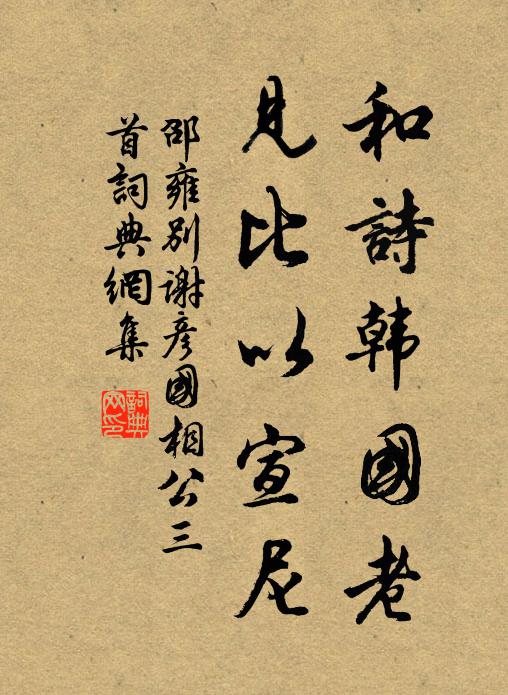 和詩韩國老
見比以宣尼
邵雍别謝彦國相公三
首詞典網集
詞典
网印